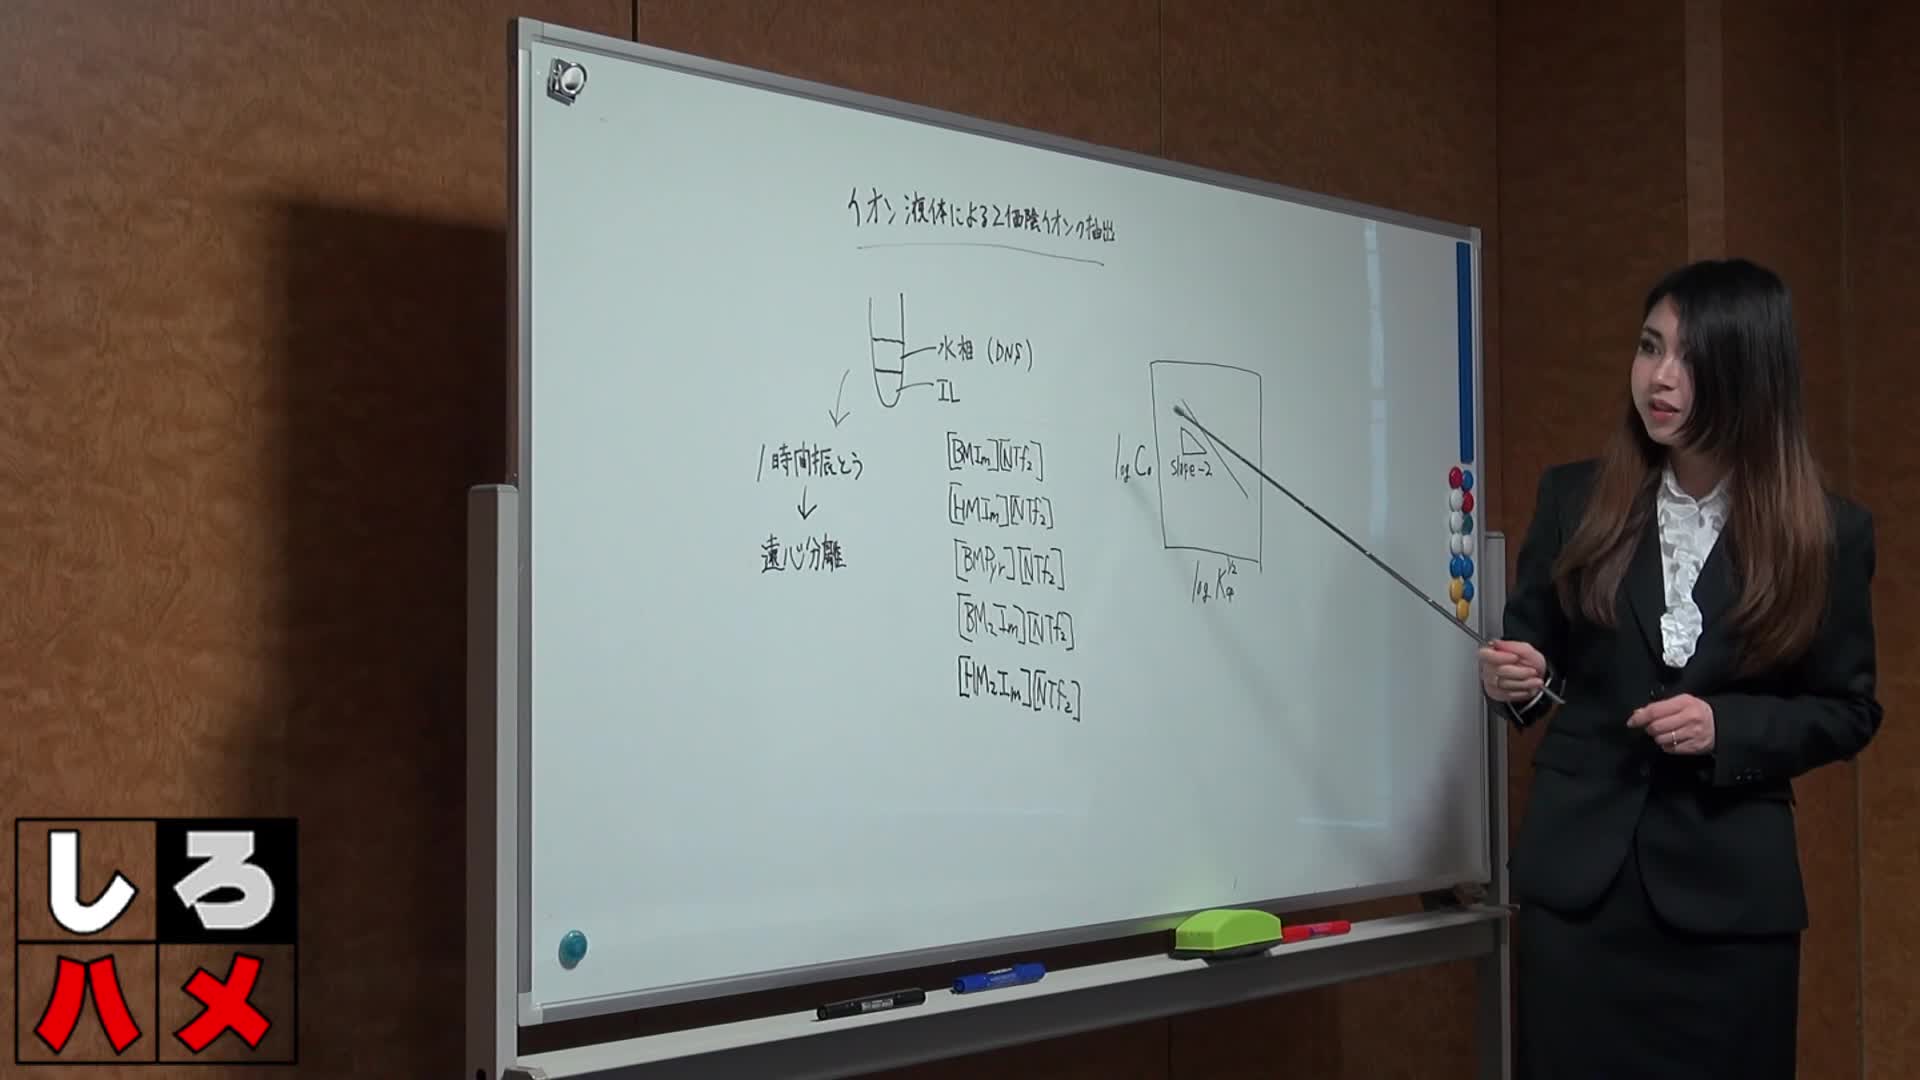 イオン液体による2価陰イオンの抽出
水相 (DNS)
IL
1時間振とう
遠心分離
[BMIm][NTf2]
[HMIm][NTf2]
[BMPyr][NTf2]
[BM2Im][NTf2]
[HM2Im][NTf2]
log C0
slope-2
log Kφ^1/2
しろ
ハメ